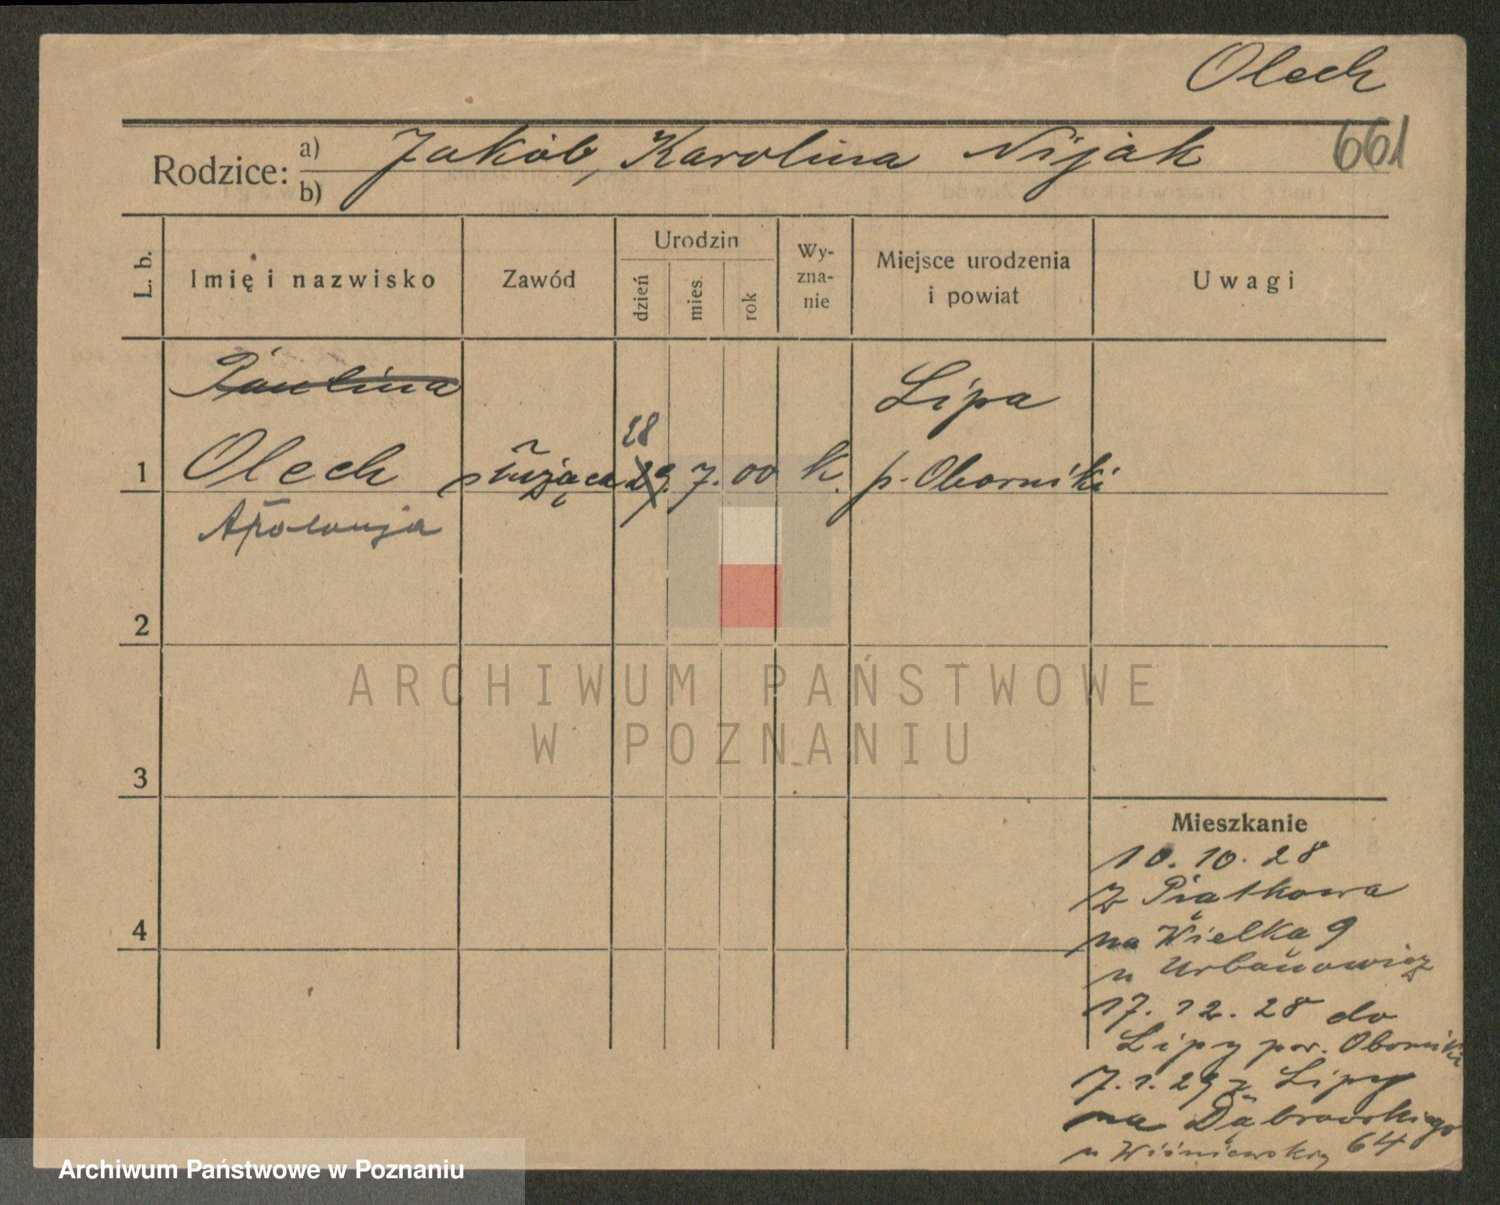 Olech
661
Rodzice: a) Jakób, Karolina Nijak
b)
L. b.
Imię i nazwisko
Zawód
Urodzin
dzień
mies.
rok
Wy-
zna-
nie
Miejsce urodzenia
i powiat
Uwagi
Paulina
Lipa
28
1 Olech służąca 29. 7. 00 k. p. Oborniki
Apolonja
2
3
4
Mieszkanie
10. 10. 28
z Piątkowa
na Wielka 9
u Urbanowicz
17. 12. 28 do
Lipy pow. Oborniki
7. 1. 29 z Lipy
na Dąbrowskiego
u Wiśniewskiej 64
ARCHIWUM PAŃSTWOWE
W POZNANIU
Archiwum Państwowe w Poznaniu